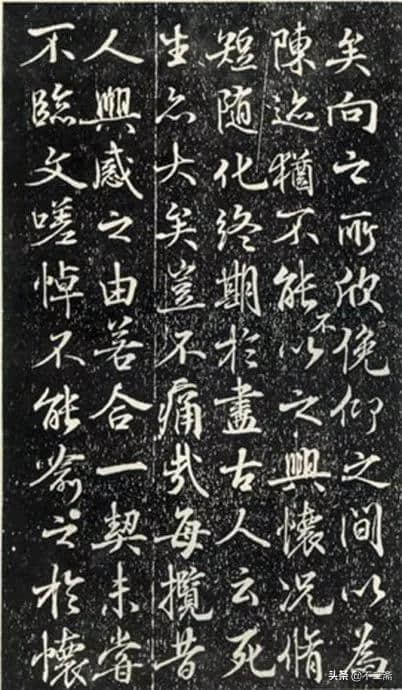 矣向之所欣俛仰之間以為
陳迹猶不能不以之興懷況脩
短隨化終期於盡古人云死
生亦大矣豈不痛哉每攬昔
人興感之由若合一契未嘗
不臨文嗟悼不能喻之於懷
头条 @不二斋